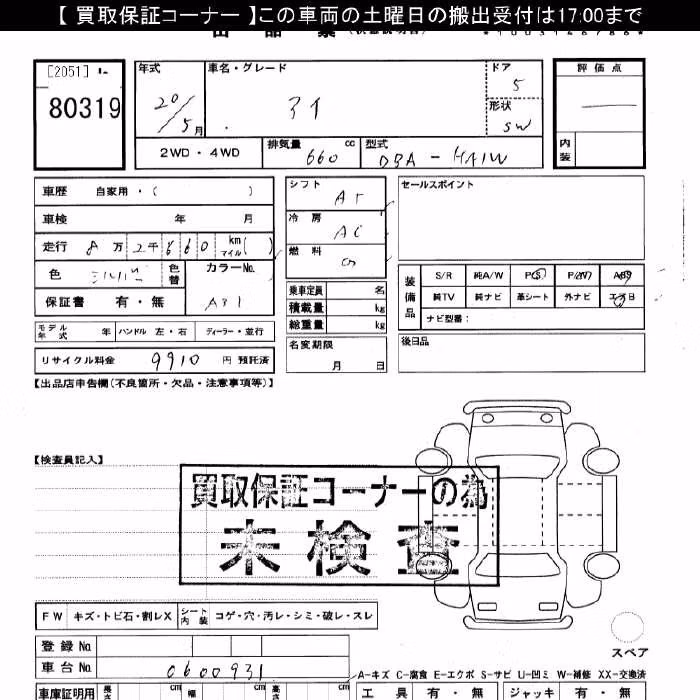 【 買取保証コーナー 】この車両の土曜日の搬出受付は17:00まで
[2051]
80319
年式
20/5月
車名・グレード
アイ
ドア
5
形状
SW
評価点
内装
2WD・4WD
排気量 660 cc
型式 DBA-HA1W
車歴 自家用・( )
車検 年 月
走行 8万2千660 km マイル( )
色 シルバー 色替
カラーNo. A31
保証書 有・無
モデル年式 年 ハンドル 左・右 ディーラー・並行
リサイクル料金 9910 円 預託済
シフト AT
冷房 AC
燃料 G
乗車定員 名
積載量 kg
総重量 kg
名変期限 月 日
セールスポイント
装備品
S/R 純A/W P/S P/W A/B
純TV 純ナビ 革シート 外ナビ エアB
ナビ型番:
後日品
【出品店申告欄(不良箇所・欠品・注意事項等)】
【検査員記入】
買取保証コーナーの為
未検査
FW キズ・トビ石・割レX シート内装 コゲ・穴・汚レ・シミ・破レ・スレ
登録No.
車台No. 0600931
スペア
A-キズ C-腐食 E-エクボ S-サビ U-凹ミ W-補修 XX-交換済
車庫証明用 長さ cm 幅 cm 高さ cm
工具 有・無 ジャッキ 有・無